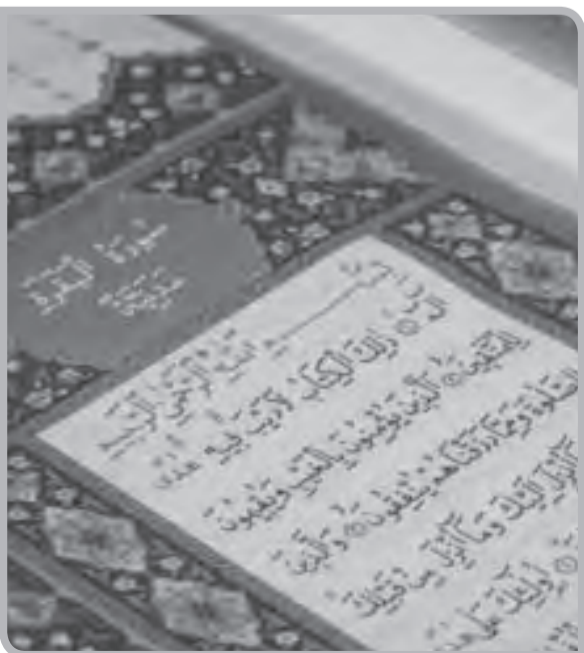 سورة البقرة
بسم الله الرحمن الرحيم
الم ذلك الكتاب لا ريب فيه هدى
للمتقين الذين يؤمنون بالغيب ويقيمون
الصلوة ومما رزقناهم ينفقون والذين
بما أنزل إليك وما أنزل من قبلك
أولئك على هدى